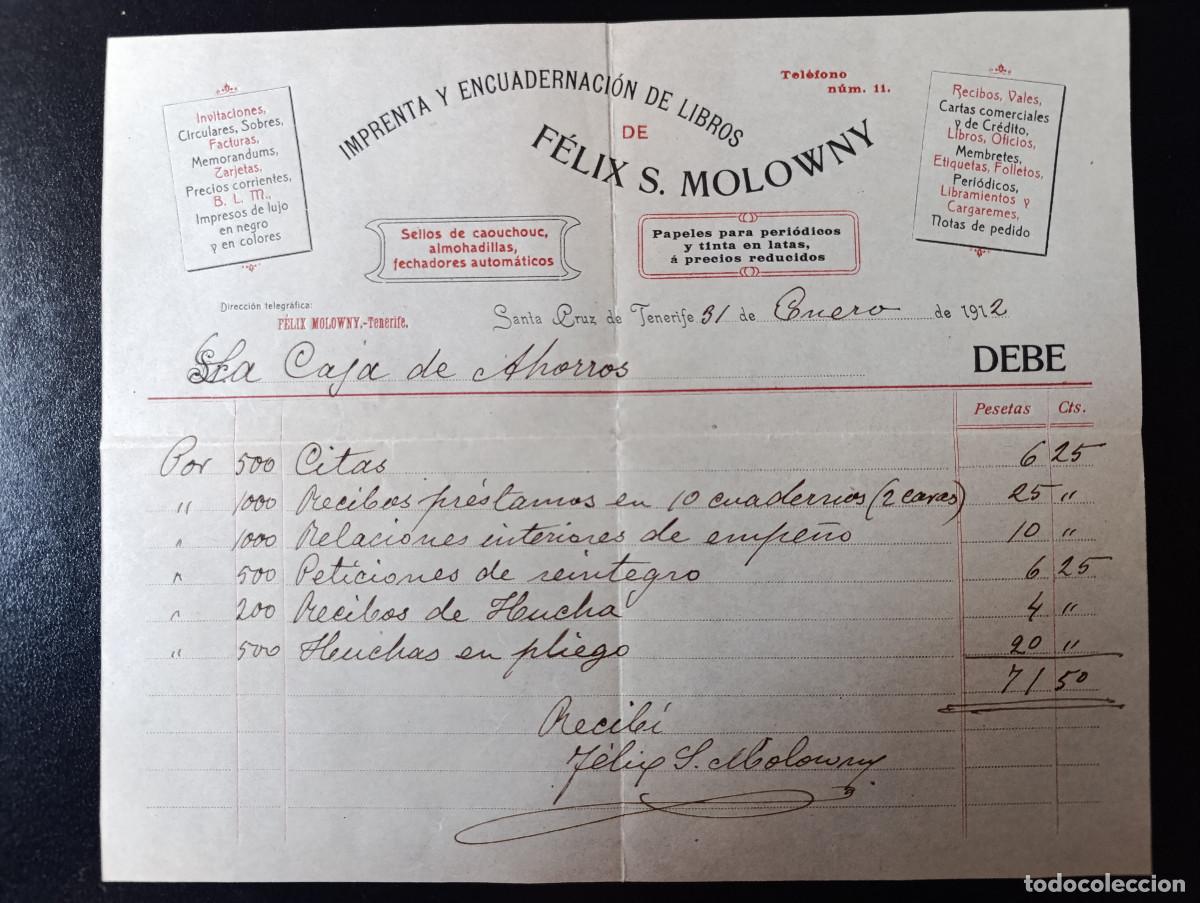 Invitaciones,
Circulares, Sobres,
Facturas,
Memorandums,
Tarjetas,
Precios corrientes,
B. L. M.,
Impresos de lujo
en negro
y en colores
IMPRENTA Y ENCUADERNACIÓN DE LIBROS
DE
FÉLIX S. MOLOWNY
Teléfono
núm. 11.
Recibos, Vales,
Cartas comerciales
y de Crédito,
Libros, Oficios,
Membretes,
Etiquetas, Folletos,
Periódicos,
Libramientos y
Cargaremes,
Notas de pedido
Sellos de caouchouc,
almohadillas,
fechadores automáticos
Papeles para periódicos
y tinta en latas,
á precios reducidos
Dirección telegráfica:
FÉLIX MOLOWNY.-Tenerife.
Santa Cruz de Tenerife 31 de Enero de 1912
La Caja de Ahorros DEBE
Pesetas Cts.
Por 500 Citas 6 25
" 1000 Recibos préstamos en 10 cuadernos (2 caras) 25 "
" 1000 Relaciones interiores de empeño 10 "
" 500 Peticiones de reintegro 6 25
" 200 Recibos de Hucha 4 "
" 500 Huchas en pliego 20 "
71 50
Recibí
Félix S. Molowny
todocoleccion